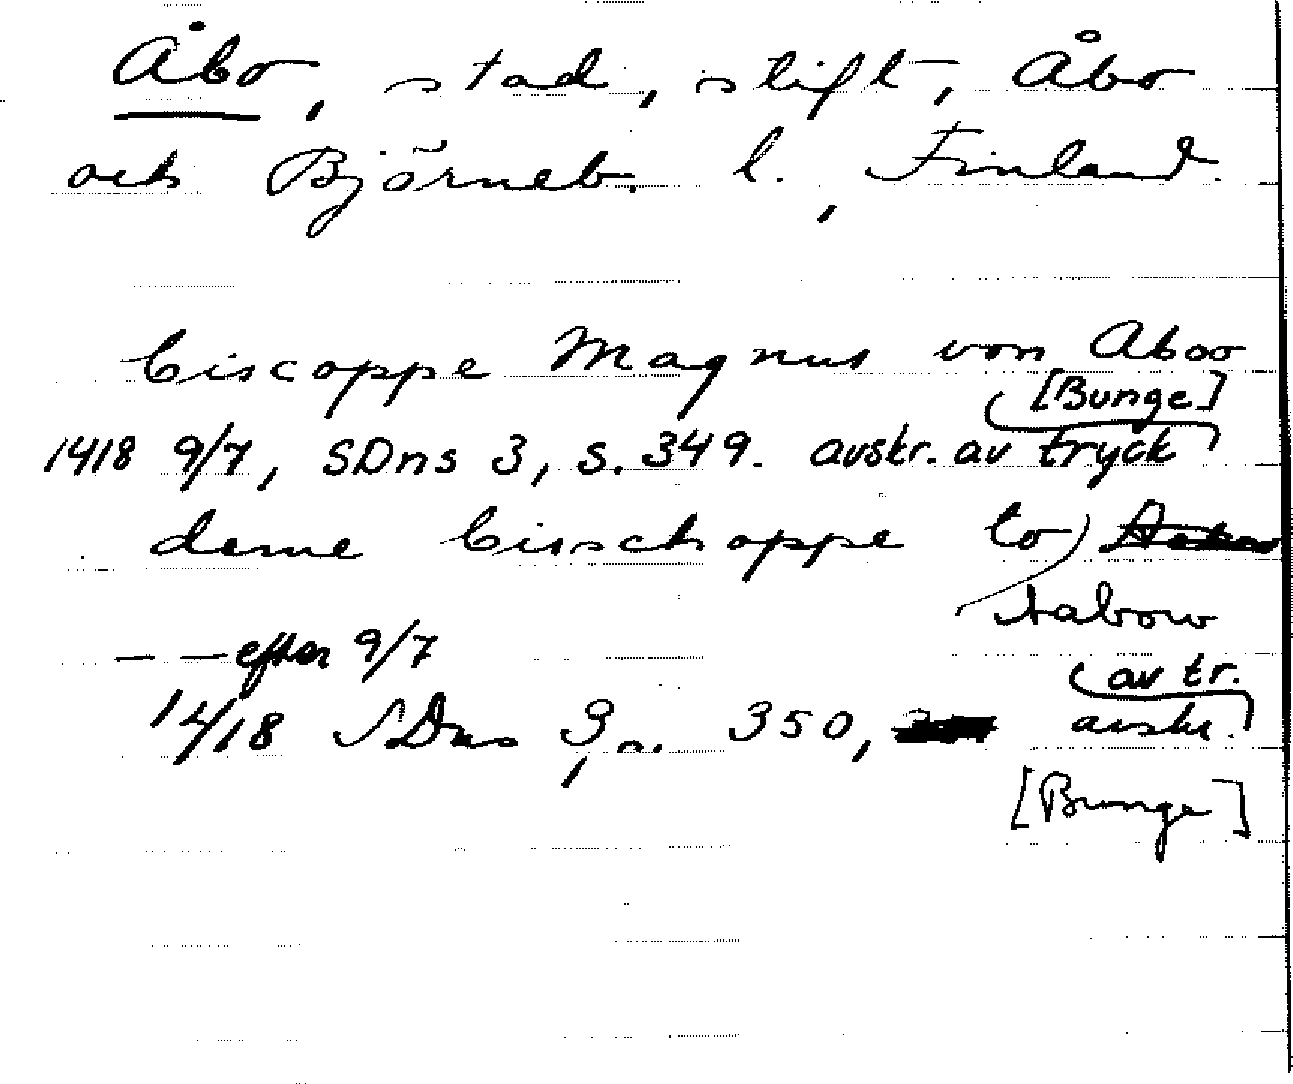 Åbo, stad, stift, Åbo
och Björneb. l., Finland.
biscoppe Magnus von Aboo
[Bunge]
1418 9/7, SDns 3, s. 349. avskr. av tryck
deme bisschoppe to
Aabow
— — efter 9/7
av tr.
1418 SDns 3, s. 350, avskr.
[Bunge]